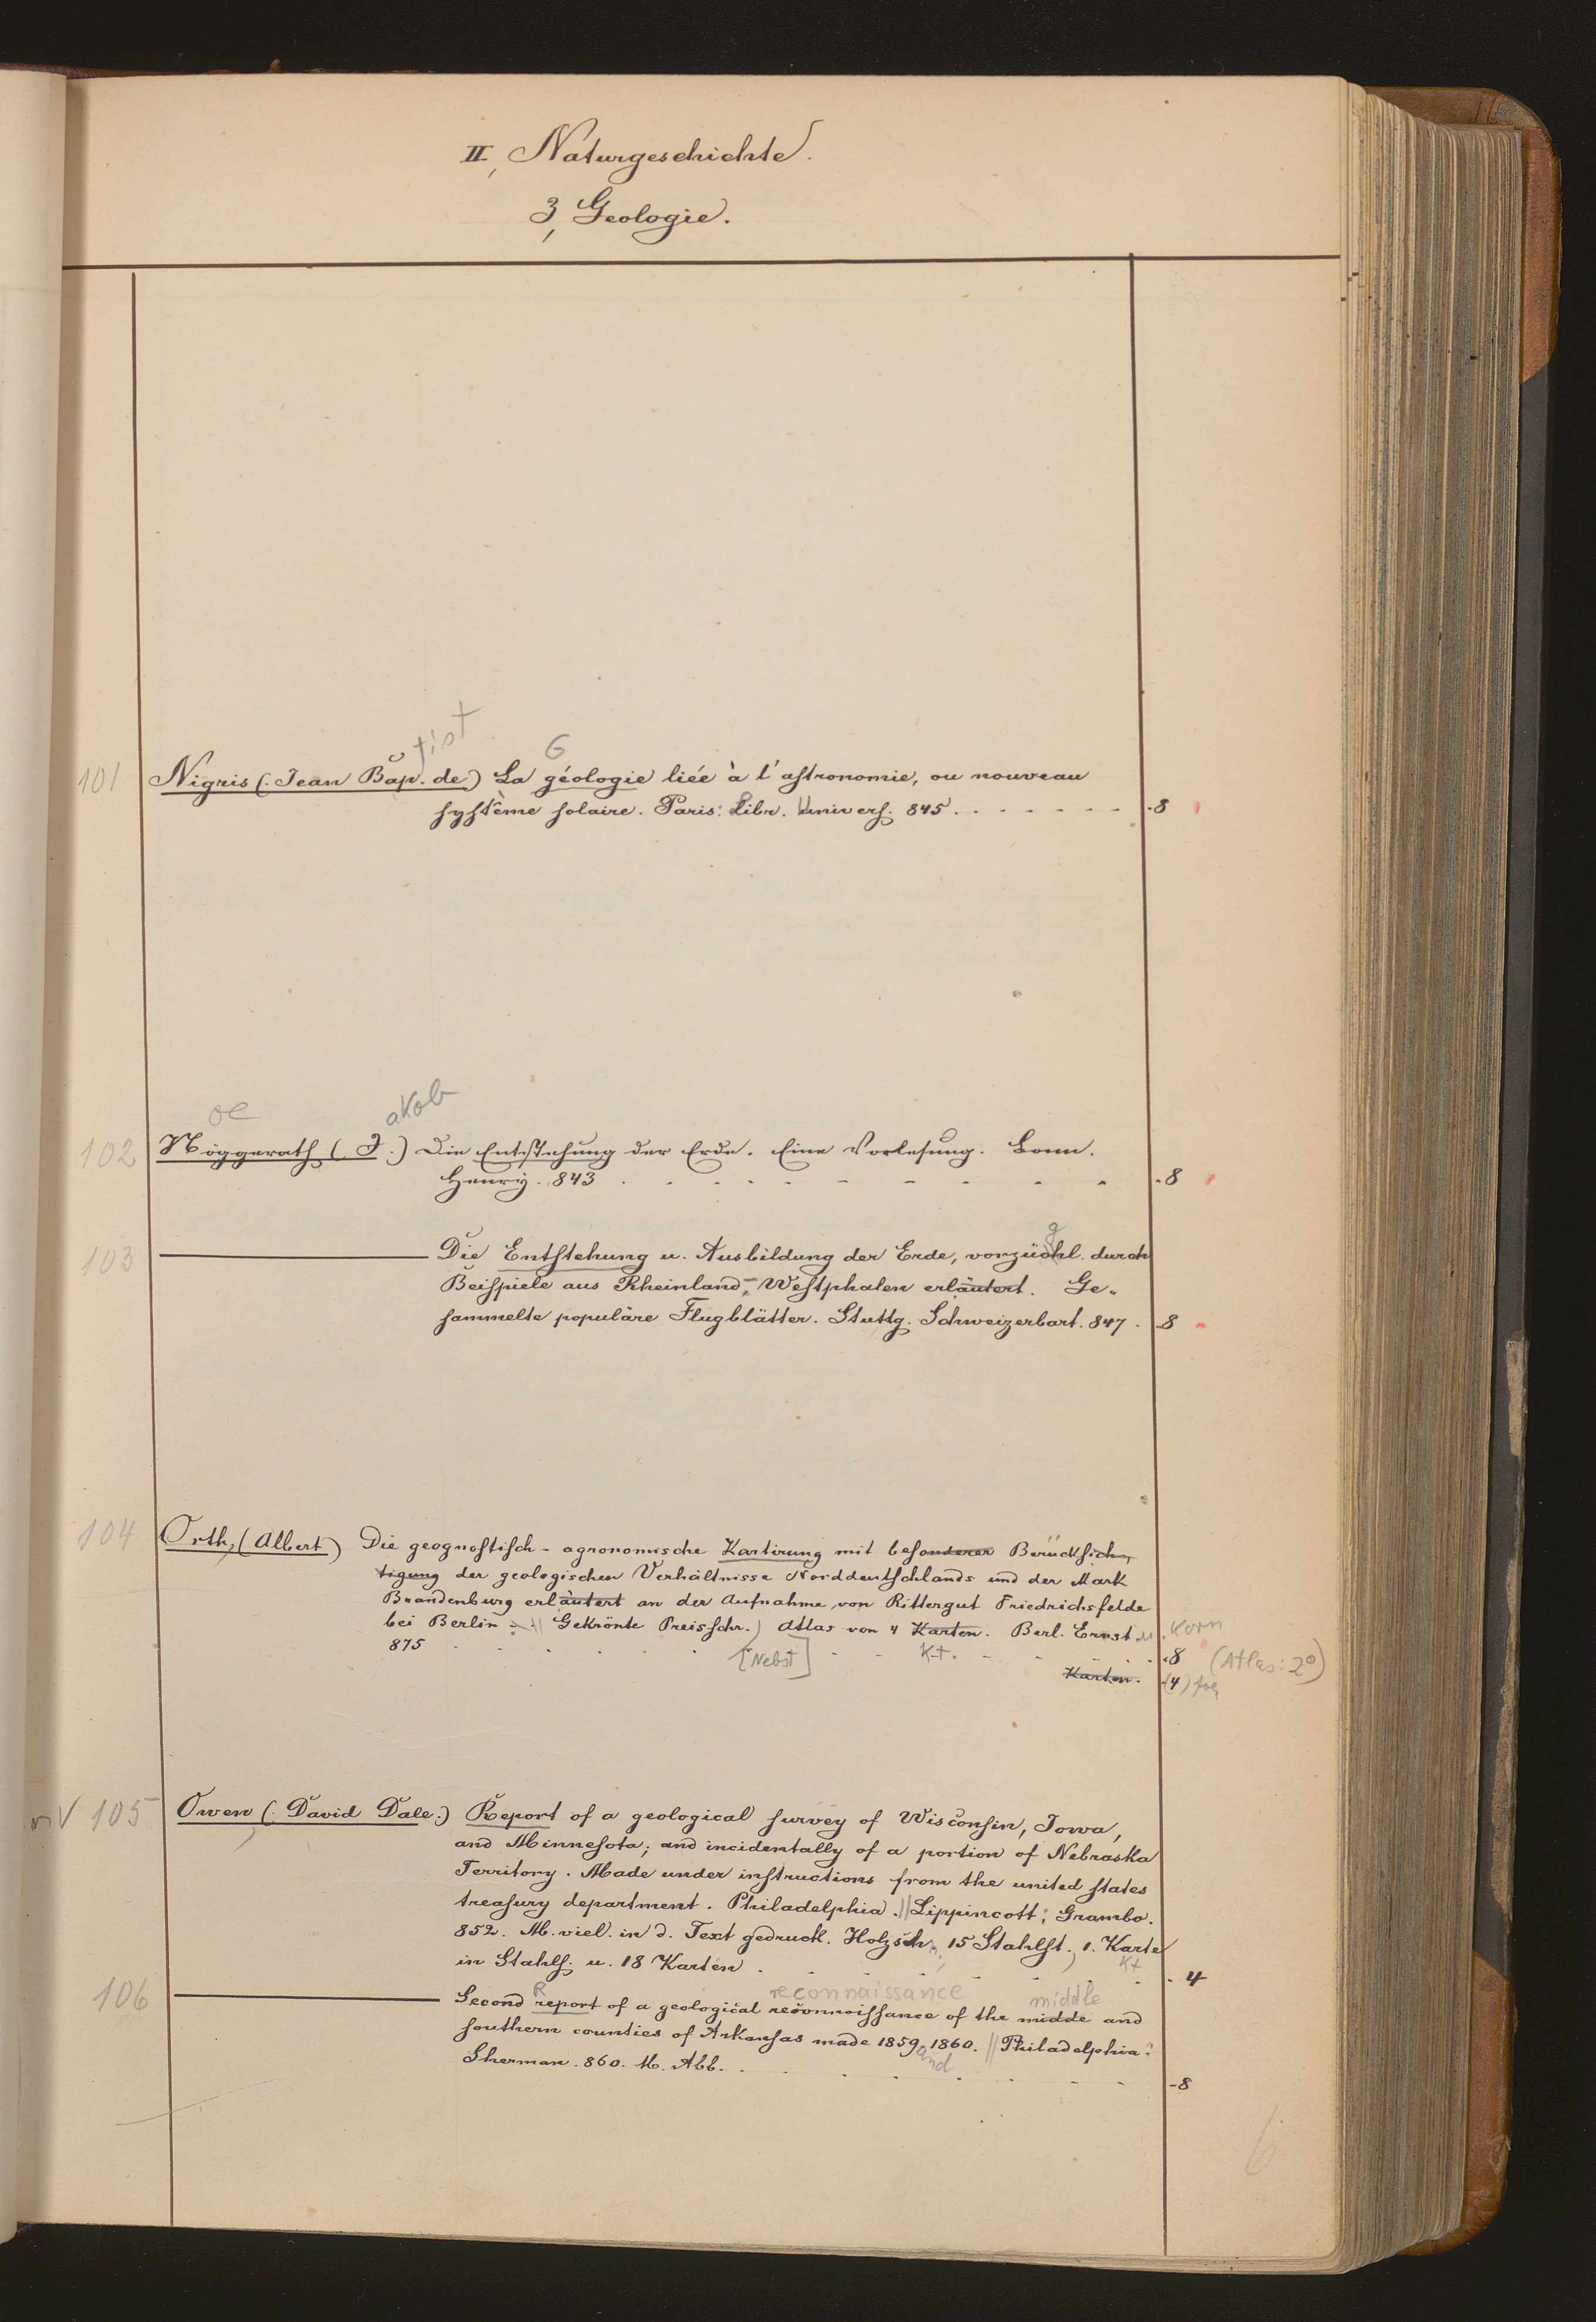 II, Naturgeschichte.
3, Geologie.
tist
G
101 Nigris (. Jean Bap. de.) La géologie liée à l'astronomie, ou nouveau
système solaire. Paris: Libr. Univers. 845. - 8
oe akob
102 Nöggerath (. J.) Die Entstehung der Erde. Eine Vorlesung. Bonn.
Henry. 843 - 8
g
103 Die Entstehung u. Ausbildung der Erde, vorzüchl. durch
Beispiele aus Rheinland-Westphalen erläutert. Ge-
sammelte populäre Flugblätter. Stuttg. Schweizerbart. 847. - 8
104 Orth, (Albert) Die geognostisch-agronomische Kartirung mit besonderer Berücksich-
tigung der geologischen Verhältnisse Norddeutschlands und der Mark
Brandenburg erläutert an der Aufnahme von Rittergut Friedrichsfelde
bei Berlin. Gekrönte Preisschr.) Atlas von 4 Karten. Berl. Ernst u. Korn
875 [Nebst] Kt. - 8 (Atlas: 2°)
Karten. (4) fol
105 Owen (. David Dale.) Report of a geological survey of Wisconsin, Iowa,
and Minnesota; and incidentally of a portion of Nebraska
Territory. Made under instructions from the united states
treasury department. Philadelphia. Lippincott; Grambo.
852. M. viel. in d. Text gedruck. Holzsch, 15 Stahlst., 1. Karte
in Stahls. u. 18 Karten Kt - 4
R reconnaissance middle
106 Second report of a geological reconnoissance of the midde and
southern counties of Arkansas made 1859 and 1860. Philadelphia:
Sherman. 860. M. Abb. - 8
6